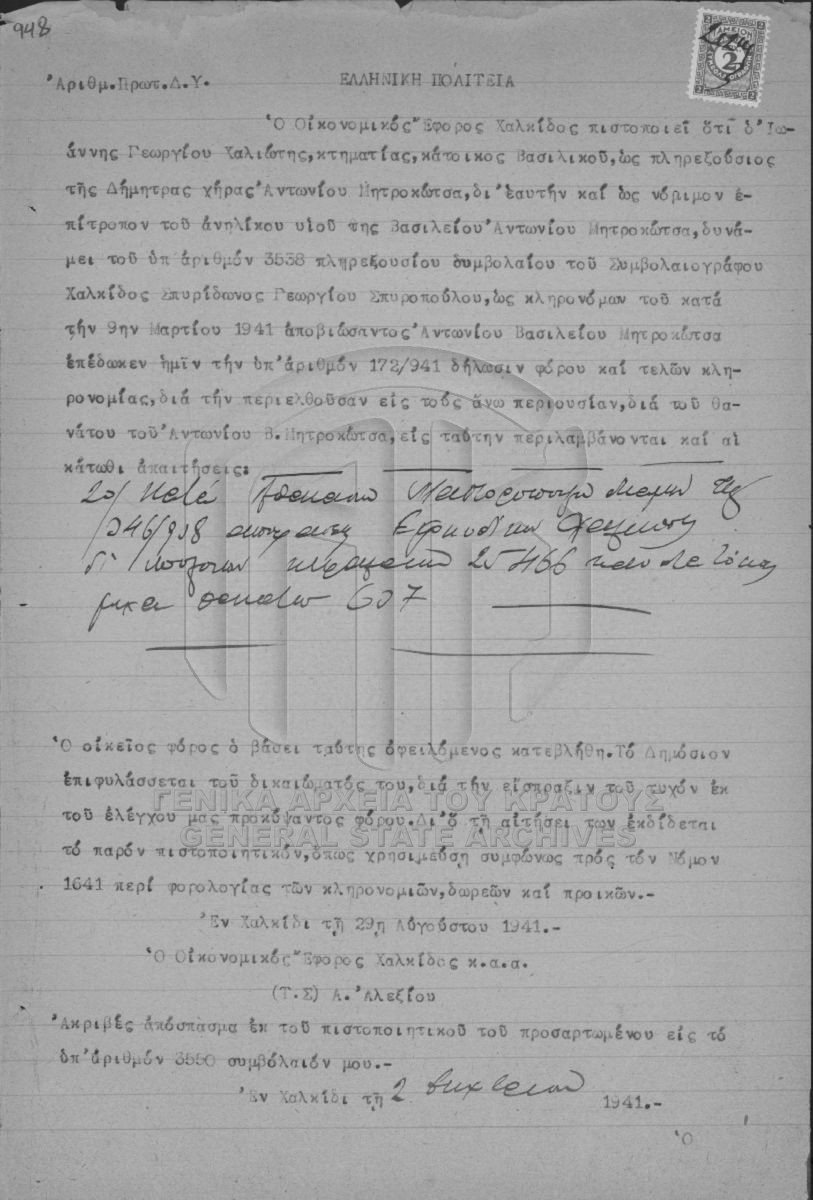 948
Ἀριθμ.Πρωτ.Δ.Υ.
ΕΛΛΗΝΙΚΗ ΠΟΛΙΤΕΙΑ
2 2
2
Ὁ Οἰκονομικός Ἔφορος Χαλκίδος πιστοποιεῖ ὅτι ὁ Ἰω-
άννης Γεωργίου Χαλιώτης,κτηματίας,κάτοικος Βασιλικοῦ,ὡς πληρεξούσιος
τῆς Δήμητρας χήρας Ἀντωνίου Μητροκώτσα,δι' ἑαυτήν καί ὡς νόμιμον ἐ-
πίτροπον τοῦ ἀνηλίκου υἱοῦ της Βασιλείου Ἀντωνίου Μητροκώτσα,δυνά-
μει τοῦ ὑπ ἀριθμόν 3538 πληρεξουσίου συμβολαίου τοῦ Συμβολαιογράφου
Χαλκίδος Σπυρίδωνος Γεωργίου Σπυροπούλου,ὡς κληρονόμων τοῦ κατά
τήν 9ην Μαρτίου 1941 ἀποβιώσαντος Ἀντωνίου Βασιλείου Μητροκώτσα
ἐπέδωκεν ἡμῖν τήν ὑπ'ἀριθμόν 172/941 δήλωσιν φόρου καί τελῶν κλη-
ρονομίας,διά τήν περιελθοῦσαν εἰς τούς ἄνω περιουσίαν,διά τοῦ θα-
νάτου τοῦ Ἀντωνίου Β.Μητροκώτσα,εἰς ταύτην περιλαμβάνονται καί αἱ
κάτωθι ἀπαιτήσεις:
20/ Κατά
25466
607
Ὁ οἰκεῖος φόρος ὁ βάσει ταύτης ὀφειλόμενος κατεβλήθη.Τό Δημόσιον
ἐπιφυλάσσεται τοῦ δικαιώματός του,διά τήν εἴσπραξιν τοῦ τυχόν ἐκ
τοῦ ἐλέγχου μας προκύψαντος φόρου.Δι'ὅ τῇ αἰτήσει των ἐκδίδεται
τό παρόν πιστοποιητικόν,ὅπως χρησιμεύσῃ συμφώνως πρός τόν Νόμον
1641 περί φορολογίας τῶν κληρονομιῶν,δωρεῶν καί προικῶν.-
Ἐν Χαλκίδι τῇ 29ῃ Αὐγούστου 1941.-
Ὁ Οἰκονομικός Ἔφορος Χαλκίδος κ.α.α.
(Τ.Σ) Α. Ἀλεξίου
Ἀκριβές ἀπόσπασμα ἐκ τοῦ πιστοποιητικοῦ τοῦ προσαρτωμένου εἰς τό
ὑπ'ἀριθμόν 3550 συμβόλαιόν μου.-
Ἐν Χαλκίδι τῇ 2 1941.-
Ὁ
ΓΕΝΙΚΑ ΑΡΧΕΙΑ ΤΟΥ ΚΡΑΤΟΥΣ
GENERAL STATE ARCHIVES